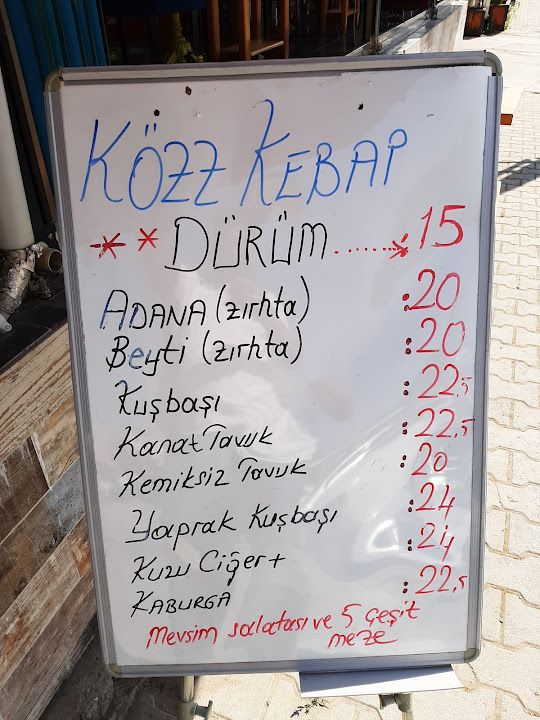 KÖZZ KEBAP
** DÜRÜM......:15
ADANA (zırhta) :20
Beyti (zırhta) :20
Kuşbaşı :22,5
Kanat Tavuk :22,5
Kemiksiz Tavuk :20
Yaprak Kuşbaşı :24
Kuzu Ciğer+ :24
KABURGA :22,5
Mevsim salatası ve 5 çeşit
meze